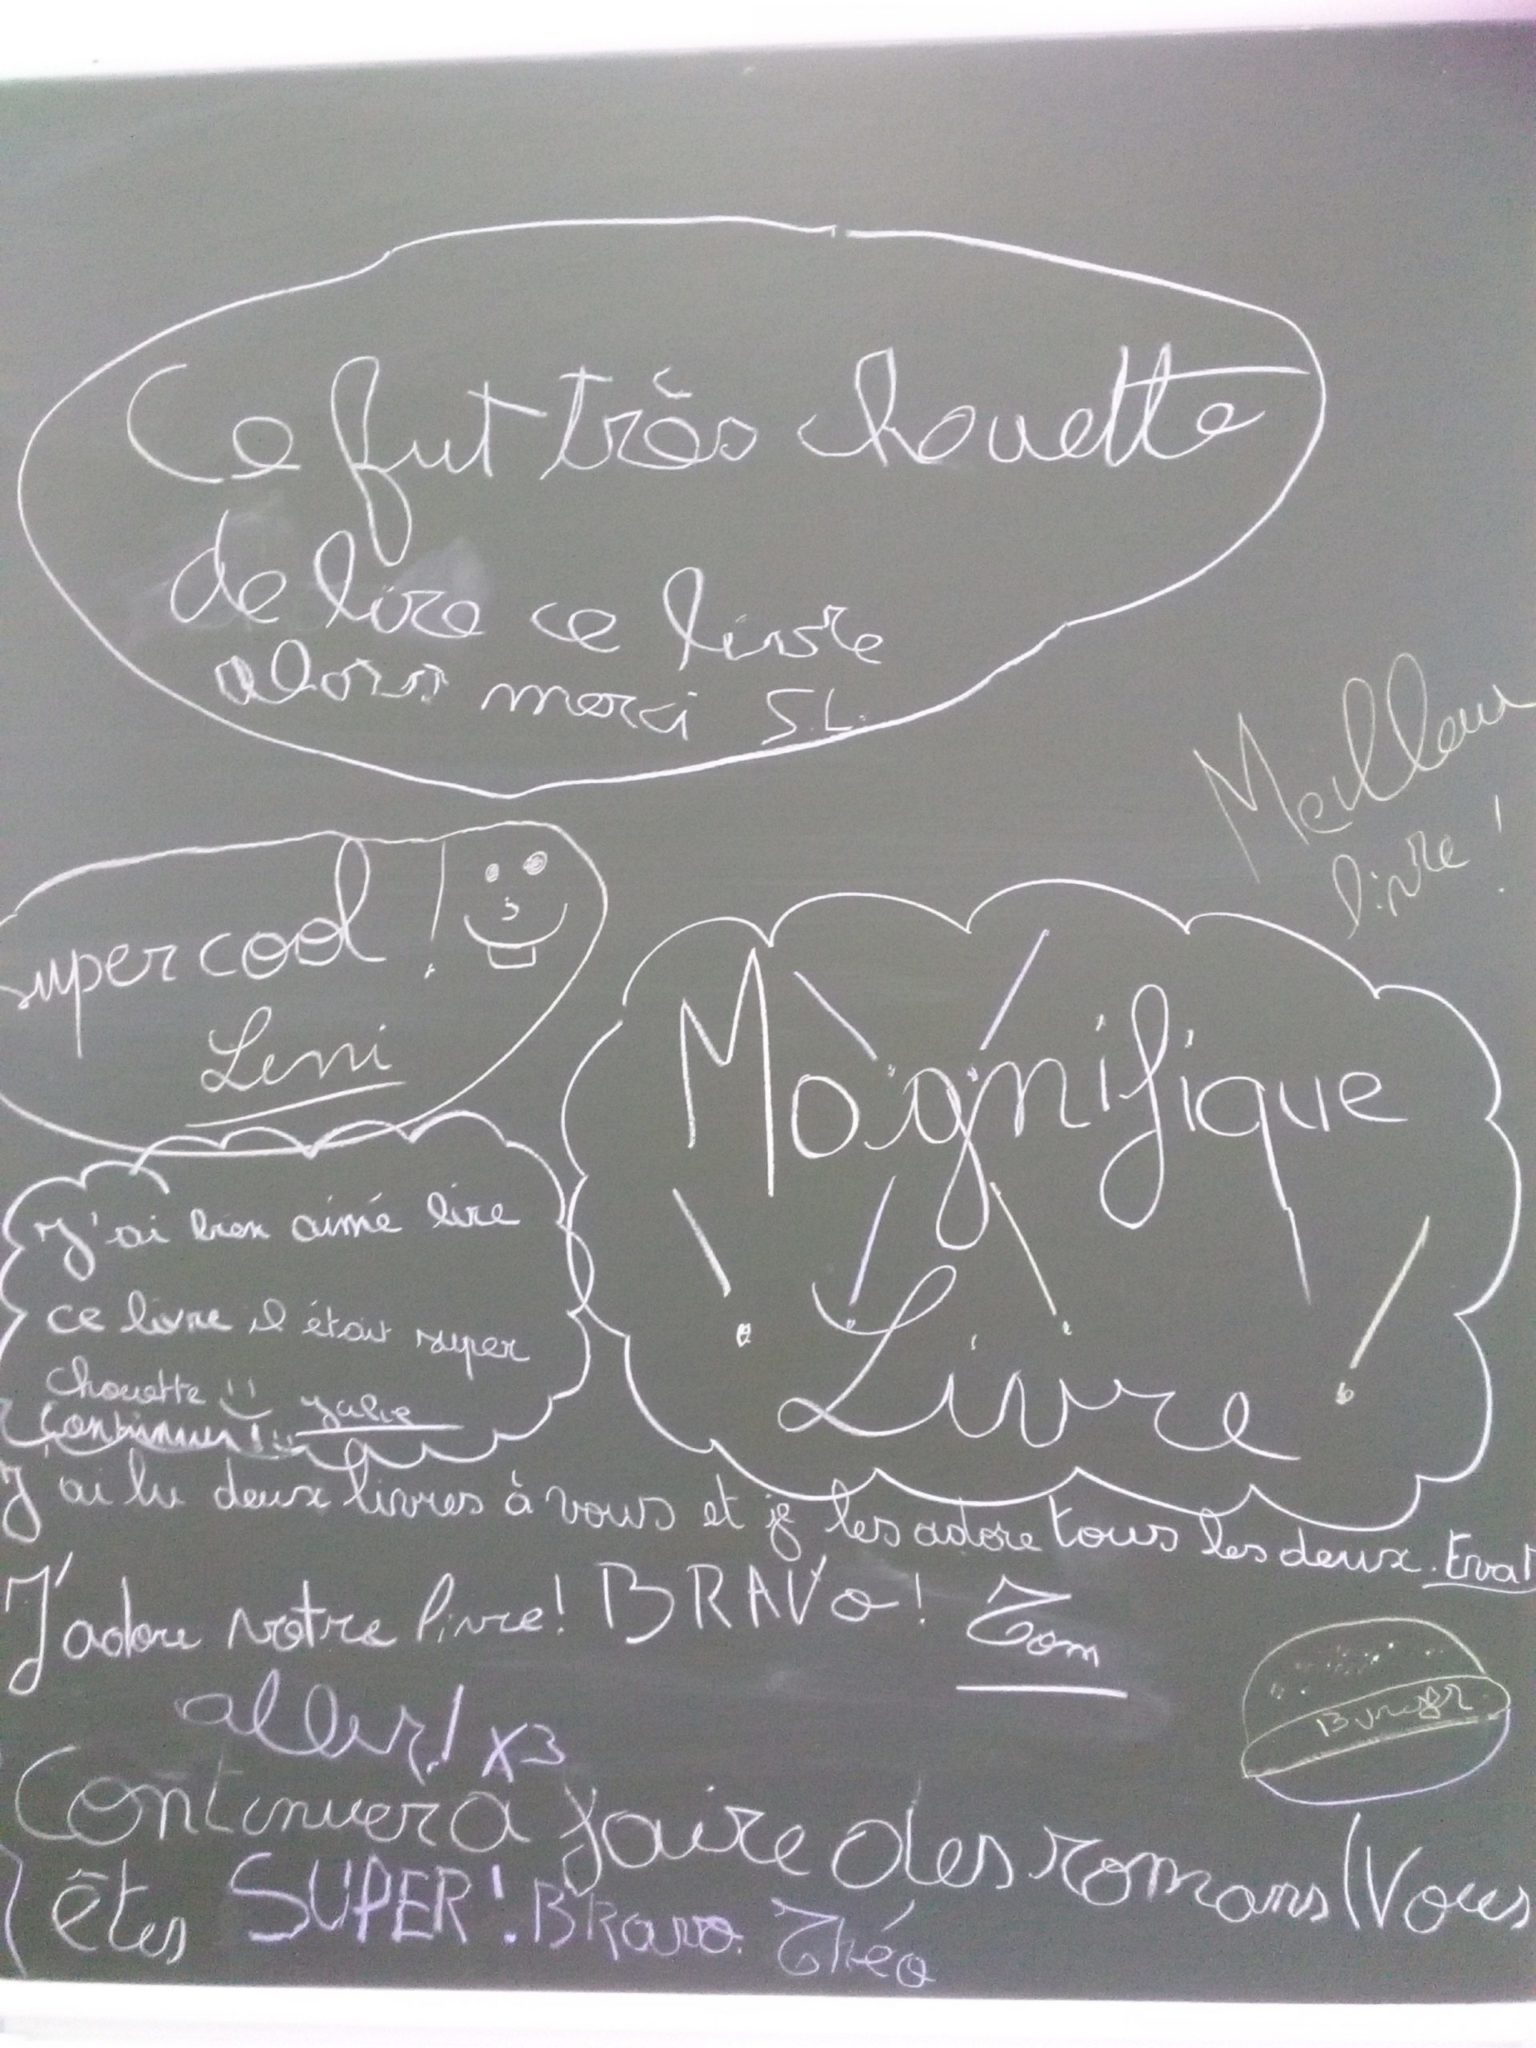 Ce fut très chouette
de lire ce livre
alors merci S.L.
Meilleur
livre !
super cool !
Leni
Magnifique
Livre
J'ai bien aimé lire
ce livre il était super
chouette :)
Continuer !
J'ai lu deux livres à vous et je les adore tous les deux.
J'adore votre livre ! BRAVO ! Tom
Burger
aller ! x3
Continuer à faire des romans ! Vous
êtes SUPER ! BRavo. Théo